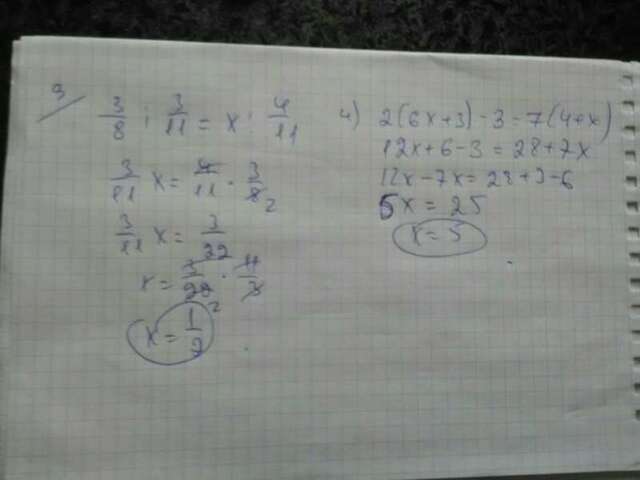 3/
3/8 : 3/11 = x : 4/11
3/11 x = 4/11 · 3/8 2
3/11 x = 3/22
x = 3/22 · 11/3
2
x = 1/2
4) 2(6x+3) - 3 = 7(4+x)
12x + 6 - 3 = 28 + 7x
12x - 7x = 28 + 3 - 6
5x = 25
x = 5